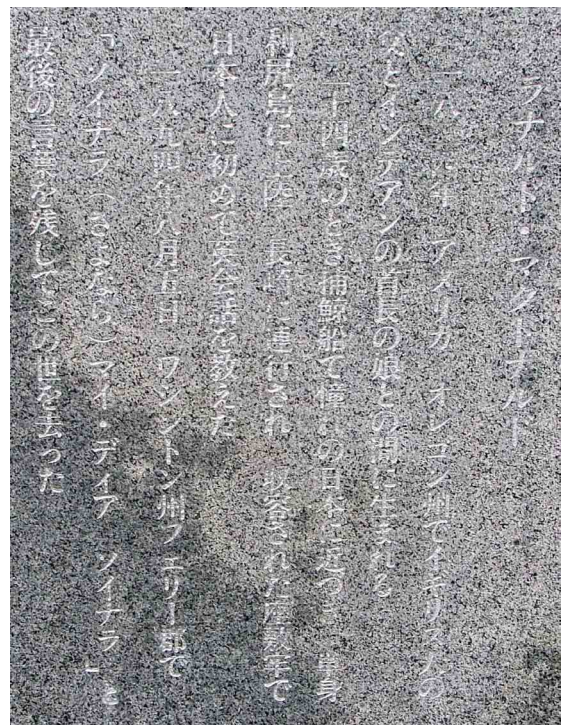 ラナルド・マクドナルド
一八二四年 アメリカ オレゴン州でイギリス人の
父とインデアンの首長の娘との間に生まれる
二十四歳のとき捕鯨船で憧れの日本に近づき 単身
利尻島に上陸 長崎に連行され 収容された座敷牢で
日本人に初めて英会話を教えた
一八九四年八月五日 ワシントン州フェリー郡で
「ソイナラ(さよなら)マイ・ディア ソイナラ」と
最後の言葉を残してこの世を去った